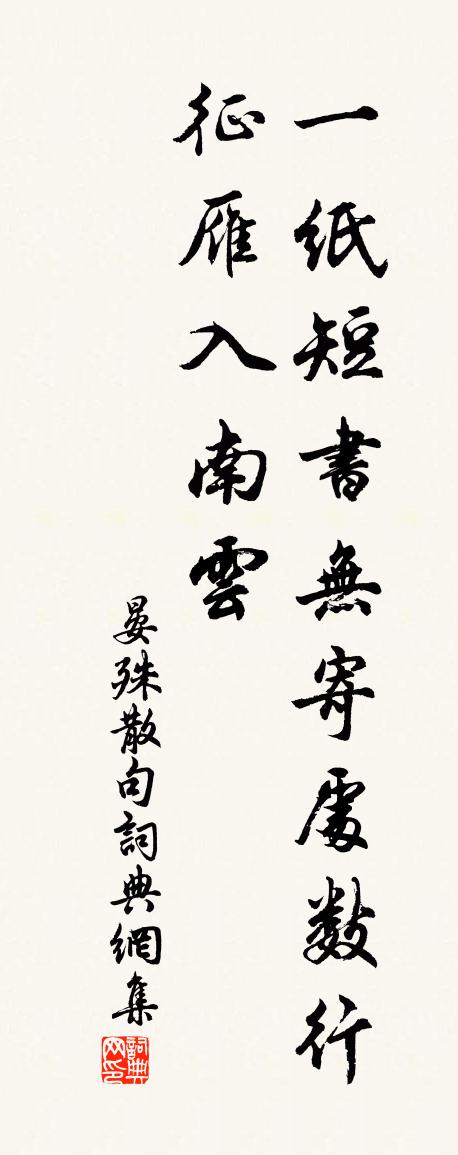 一紙短書無寄處數行
征雁入南雲
晏殊散句詞典網集
詞典网印